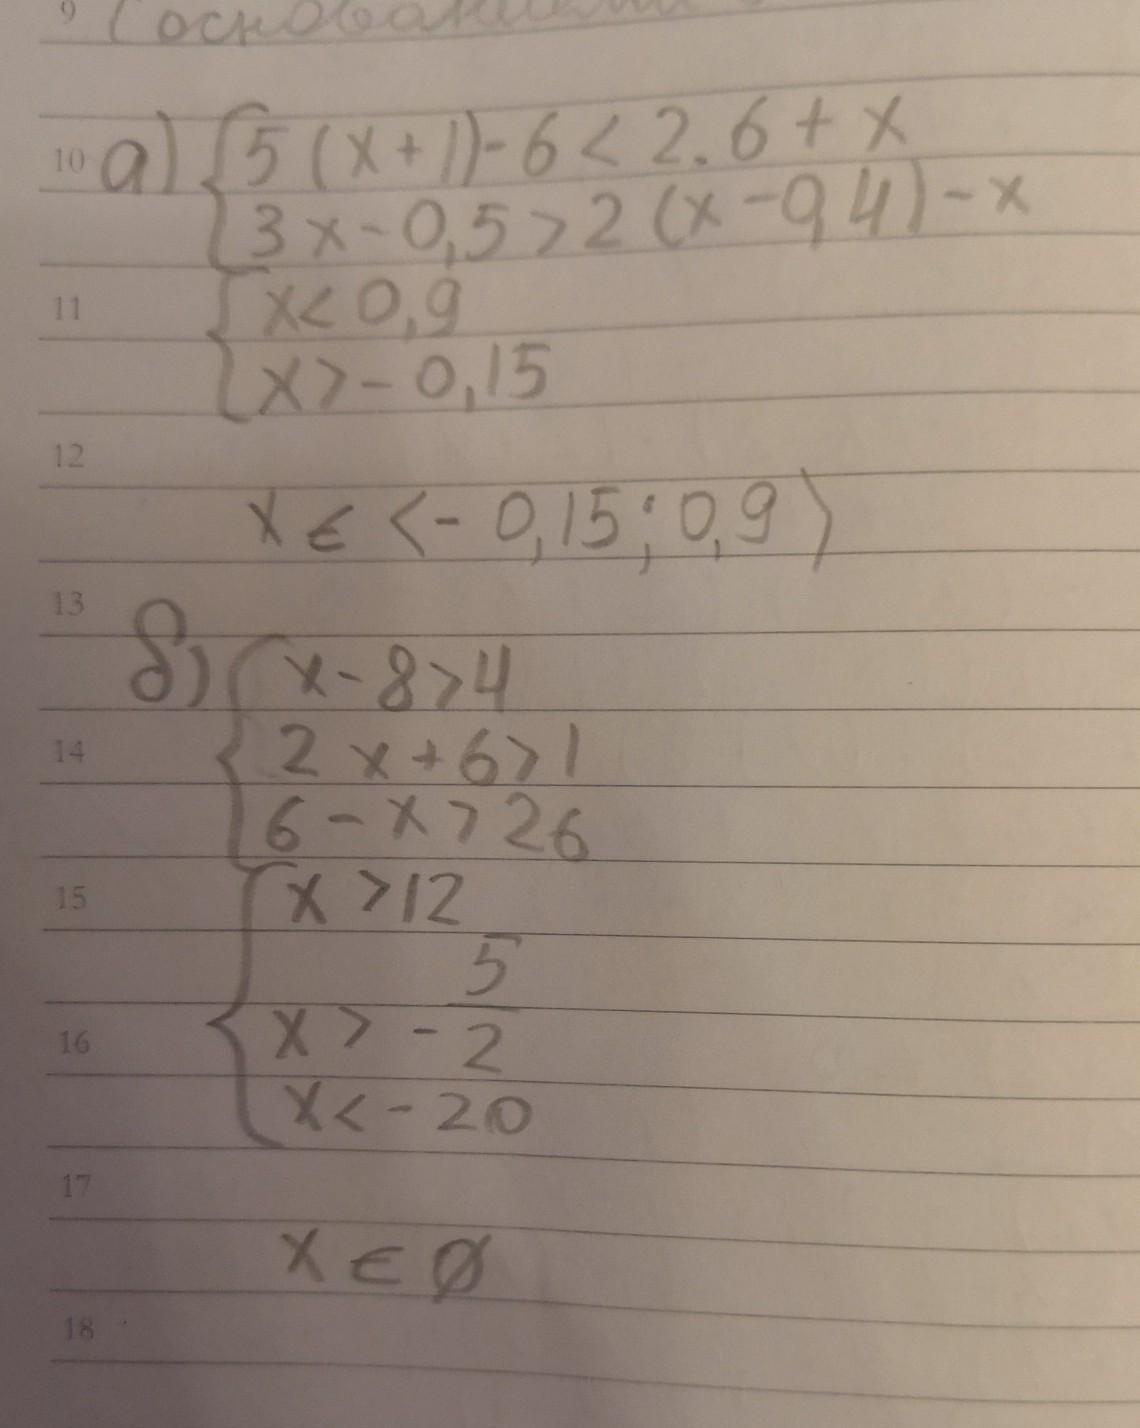 9 (основаниями
10 а) { 5(x+1)-6<2.6+x
3x-0,5>2(x-0,4)-x
11 { x<0,9
x>-0,15
12
x∈<-0,15;0,9)
13
б) { x-8>4
14 2x+6>1
6-x>26
15 { x>12
16 x>-5/2
x<-20
17
x∈Ø
18